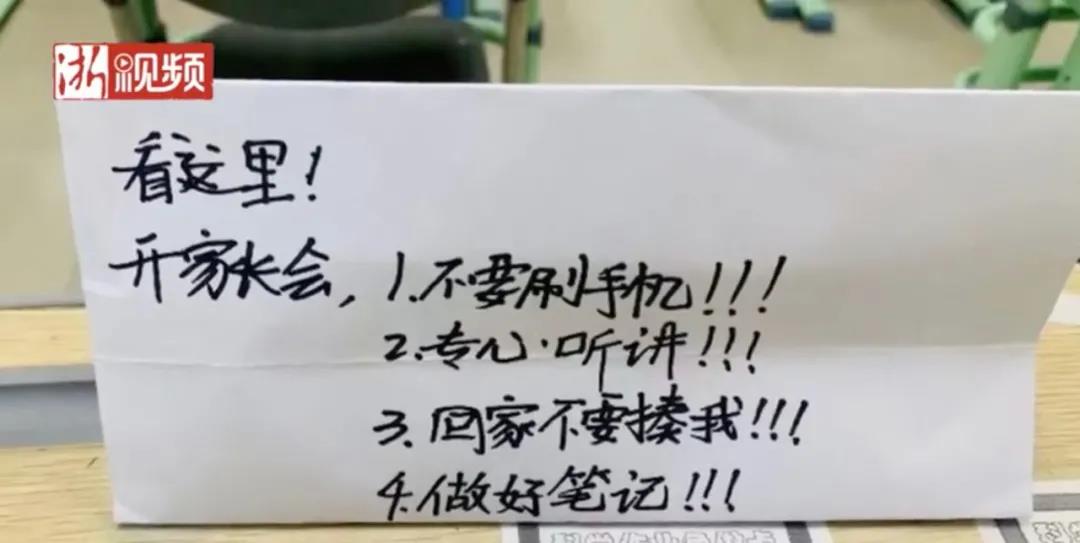 视频
看这里!
开家长会, 1.不要刷手机!!!
2.专心听讲!!!
3.回家不要揍我!!!
4.做好笔记!!!